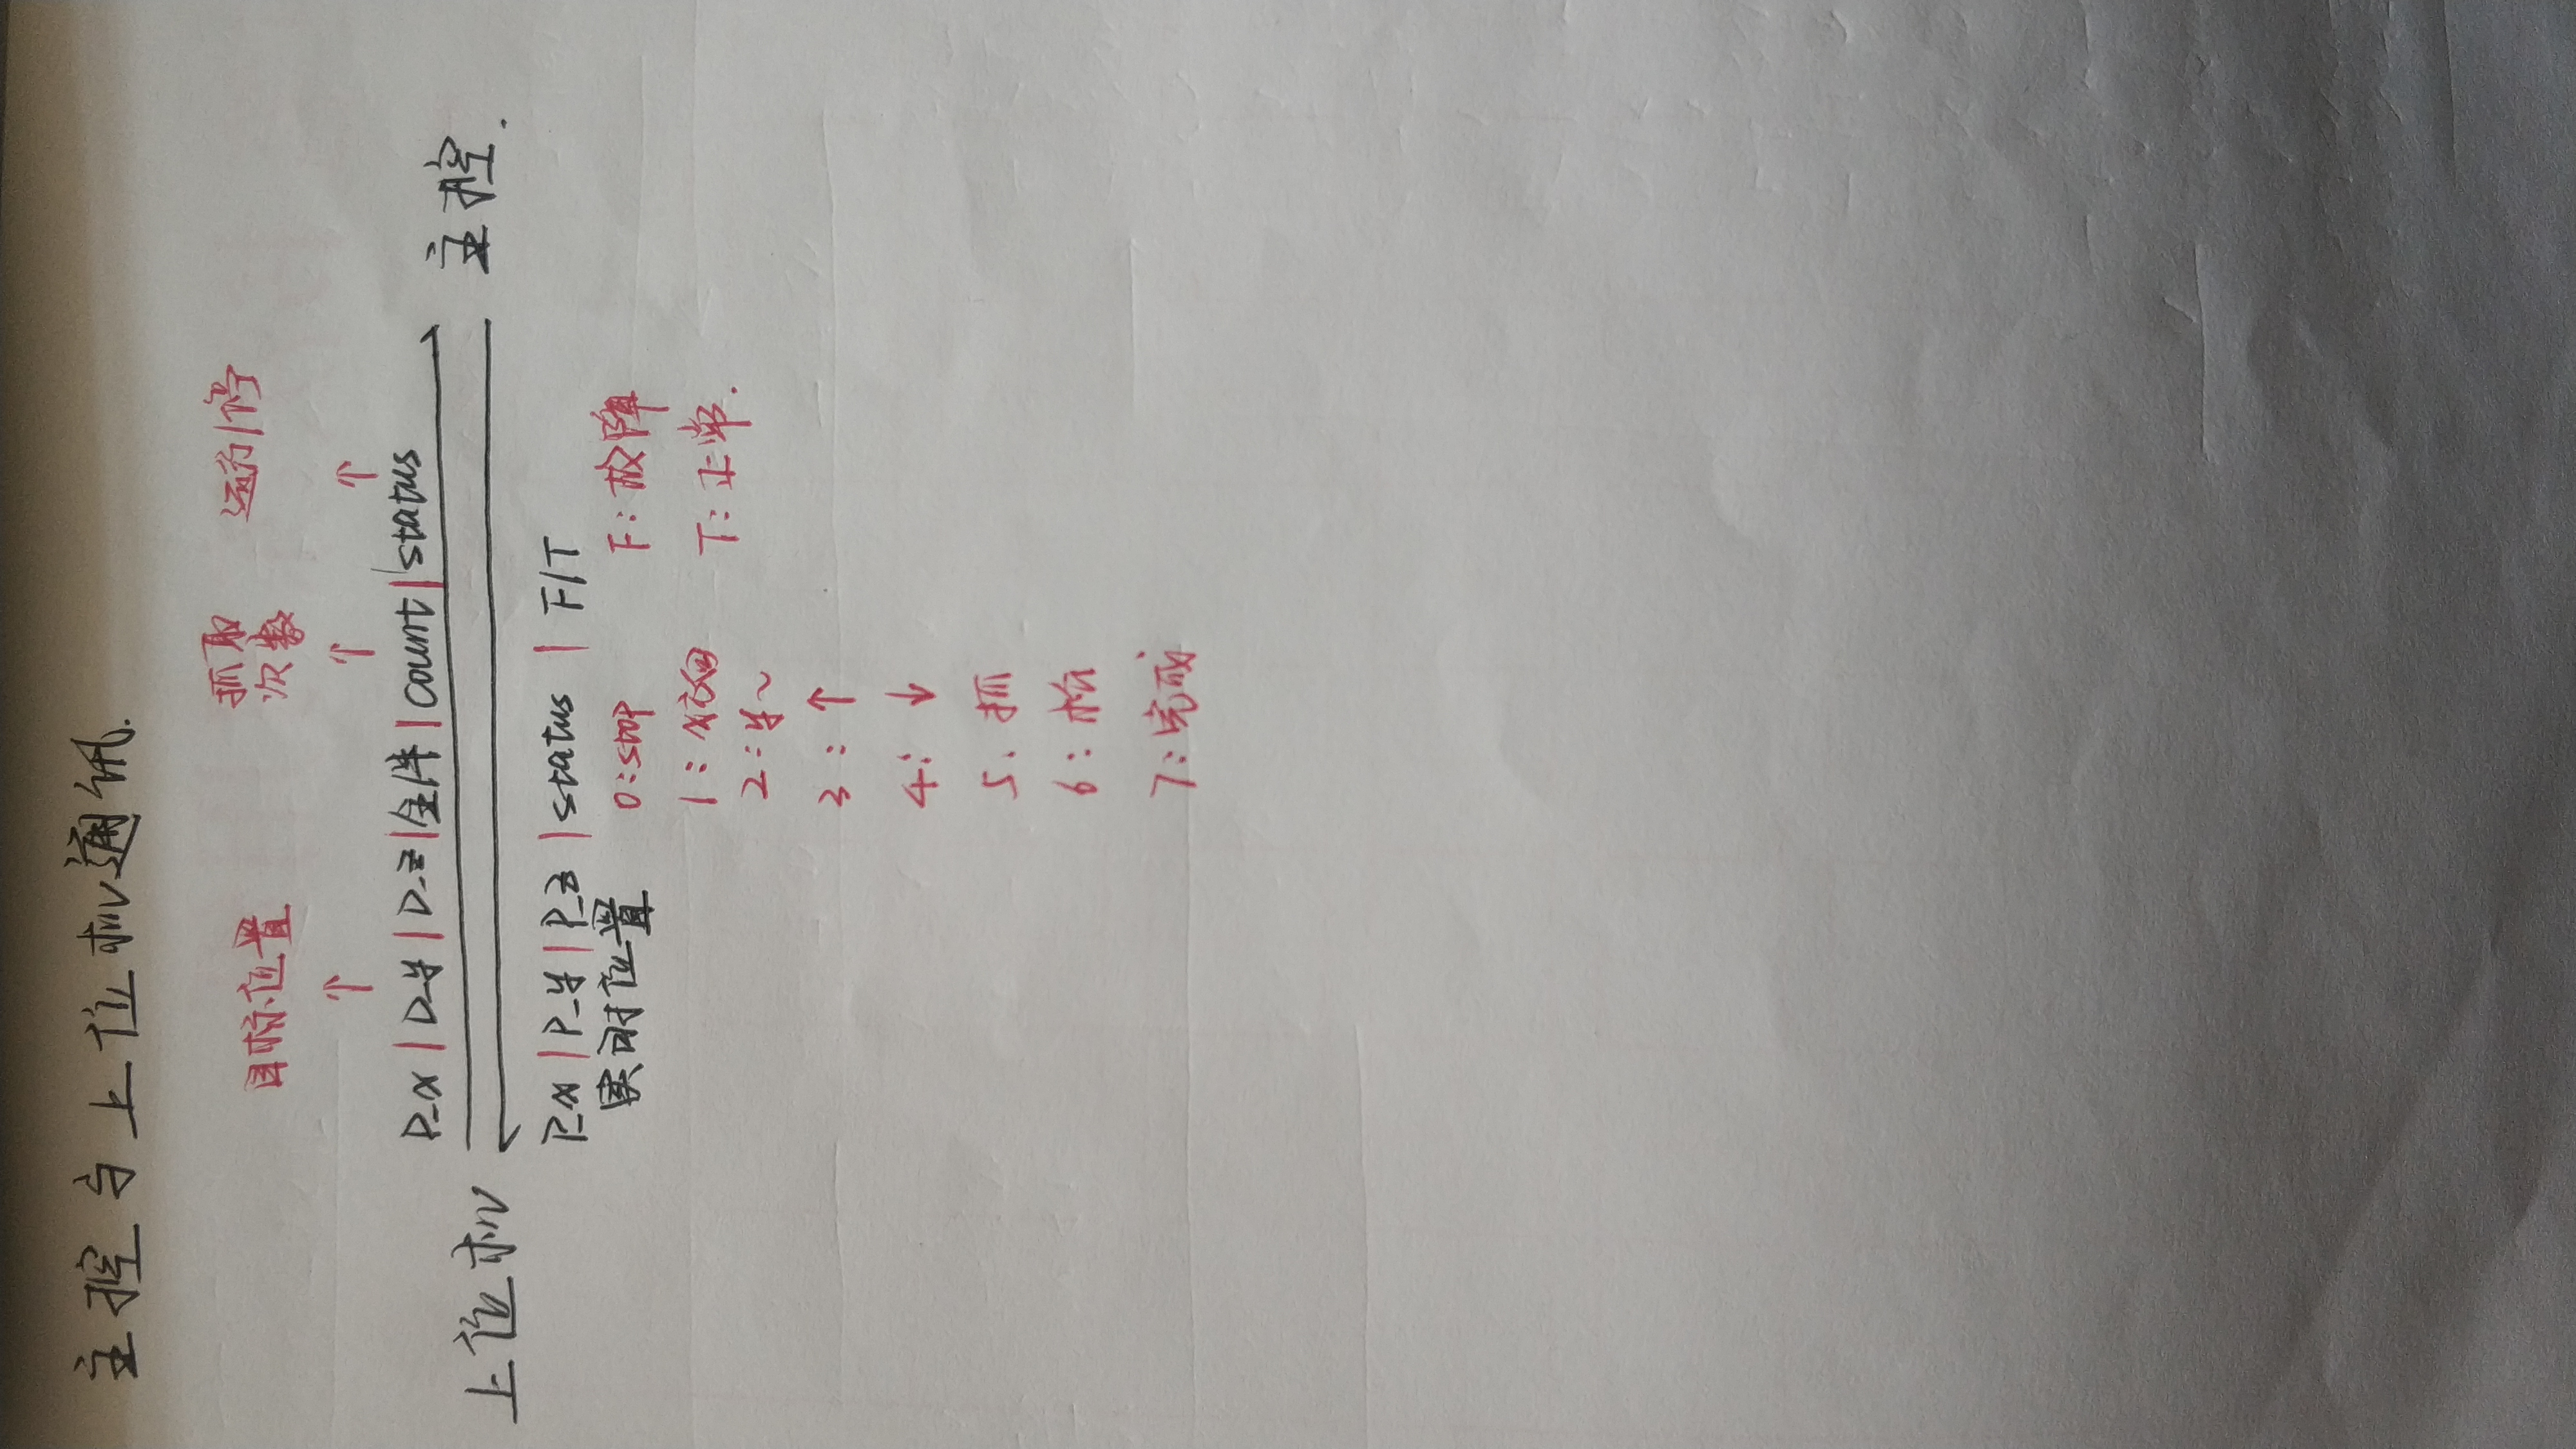 主控与上位机通讯.
目标位置 抓取次数 运行/停
↑ ↑ ↑
P_x | D_y | D_z | 全/半 | count | status
上位机 主控.
P_x | P_y | P_z | status | F/T
实时位置 0:stop F:故障
1:x方向 T:正常.
2:y~
3:↑
4:↓
5.抓
6:松
7:完成